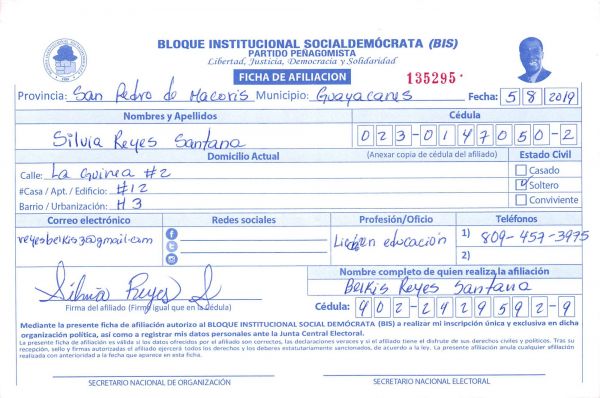 BLOQUE INSTITUCIONAL SOCIALDEMÓCRATA (BIS)
PARTIDO PEÑAGOMISTA
Libertad, Justicia, Democracia y Solidaridad
FICHA DE AFILIACION
135295
Provincia: San Pedro de Macoris Municipio: Guayacanes Fecha: 5 8 2019
Nombres y Apellidos Cédula
Silvia Reyes Santana 023-0147050-2
Domicilio Actual (Anexar copia de cédula del afiliado) Estado Civil
Calle: La Guinea #2 Casado
#Casa / Apt. / Edificio: #12 Soltero
Barrio / Urbanización: H 3 Conviviente
Correo electrónico Redes sociales Profesión/Oficio Teléfonos
reyesbelkis3@gmail.com Lic en educación 1) 809-457-3975
2)
Silvia Reyes S
Firma del afiliado (Firma igual que en la Cédula)
Nombre completo de quien realiza la afiliación
Belkis Reyes Santana
Cédula: 402-2429592-9
Mediante la presente ficha de afiliación autorizo al BLOQUE INSTITUCIONAL SOCIAL DEMÓCRATA (BIS) a realizar mi inscripción única y exclusiva en dicha
organización política, así como a registrar mis datos personales ante la Junta Central Electoral.
La presente ficha de afiliación es válida si los datos ofrecidos por el afiliado son correctos, las declaraciones veraces y si el afiliado tiene el disfrute de sus derechos civiles y políticos. Tras su
recepción, sello y firmas autorizadas el afiliado ejercerá todos los derechos y los deberes estatutariamente sancionados, de acuerdo a la ley. La presente afiliación anula cualquier afiliación
realizada con anterioridad a la fecha que aparece en esta ficha.
SECRETARIO NACIONAL DE ORGANIZACIÓN SECRETARIO NACIONAL ELECTORAL